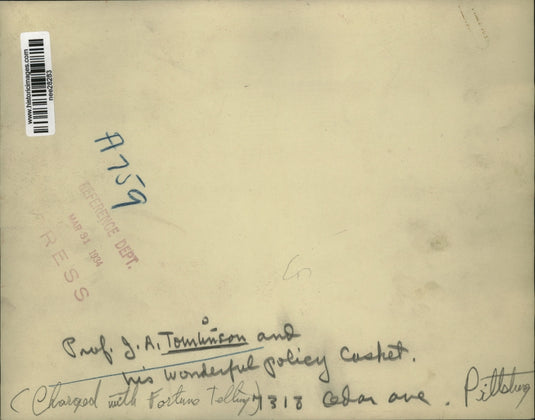 www.historicimages.com
nee28283
A759
REFERENCE DEPT.
MAR 31 1934
PRESS
Prof. J. A. Tomlinson and
his wonderful policy casket.
(Charged with Fortune Telling) 7313 Cedar ave. Pittsburg